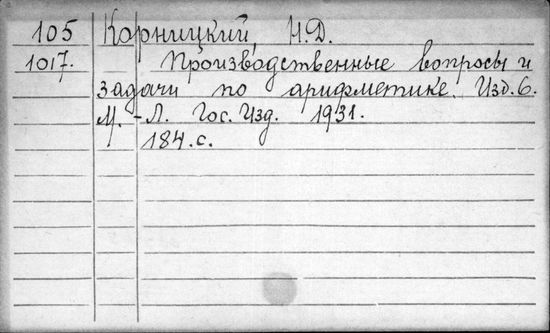 105 Корницкий, Н.Д.
1017. Производственные вопросы и
задачи по арифметике. Изд. 6.
М.-Л. Гос. Изд. 1931.
184.с.